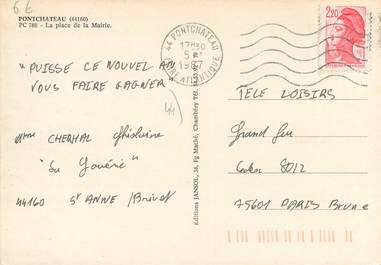 6 €
PONTCHATEAU (44160)
PC 786 - La place de la Mairie.
44 PONTCHATEAU
17H30
1987
LOIRE ATLANTIQUE
2,20
"PUISSE CE NOUVEL AN
VOUS FAIRE GAGNER"
44
TELE LOISIRS
Mme CHERHAL Ghislaine
Grand Jeu
Cedex 8012
44160 St ANNE / Brivet
75601 PARIS Brune
Editions JANNOL, 36, Fg Marché, Chambéry Tél.